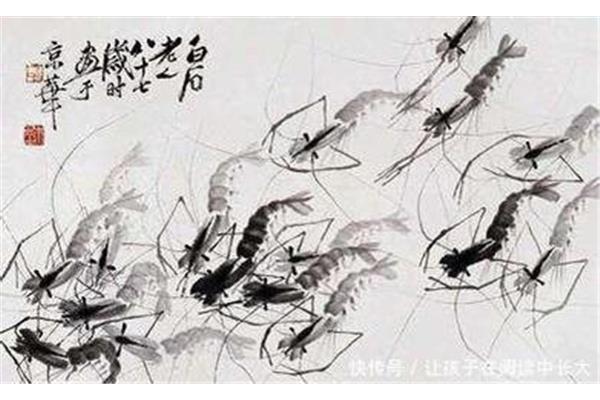 白石
老人
八十七
歲时
画于
京華
快传号 / 让孩子在阅读中长大